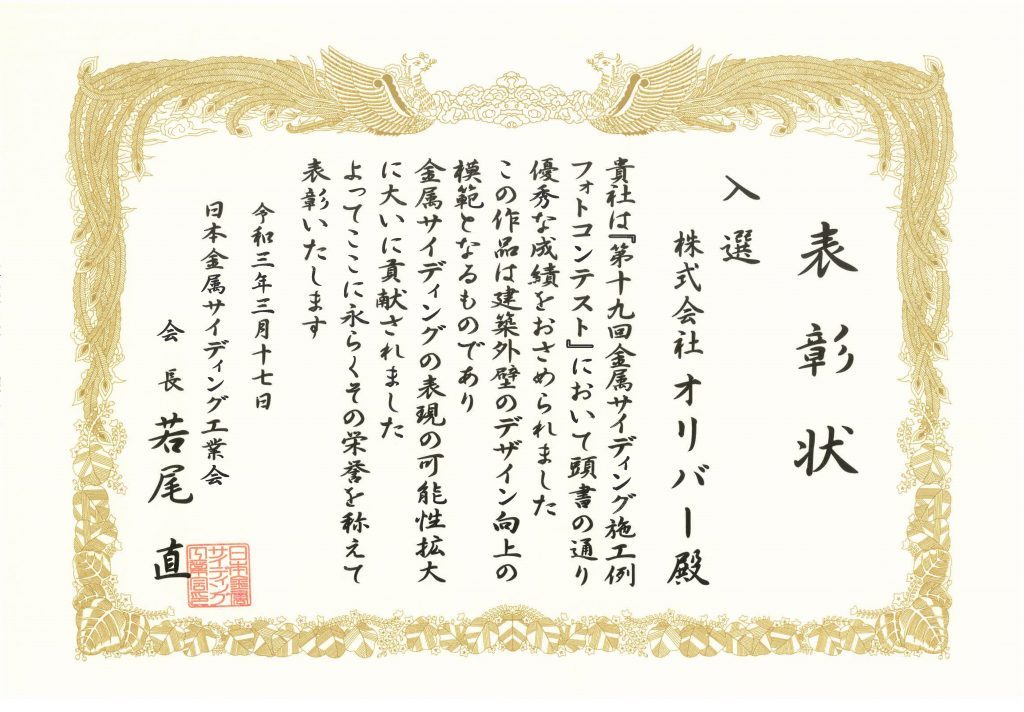 表彰状
入選
株式会社オリバー殿
貴社は『第十九回金属サイディング施工例
フォトコンテスト』において頭書の通り
優秀な成績をおさめられました
この作品は建築外壁のデザイン向上の
模範となるものであり
金属サイディングの表現の可能性拡大
に大いに貢献されました
よってここに永らくその栄誉を称えて
表彰いたします
令和三年三月十七日
日本金属サイディング工業会
会長 若尾 直
日本金属
サイディング
工業会印